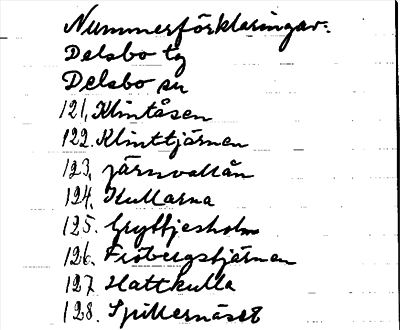 Nummerförklaringar:
Delsbo tg
Delsbo sn
121. Klintåsen
122. Klinttjärnen
123. Järnvallån
124. Kullarna
125. Gryttjesholm
126. Fröbergstjärnen
127. Hattkulla
128. Spikernäset